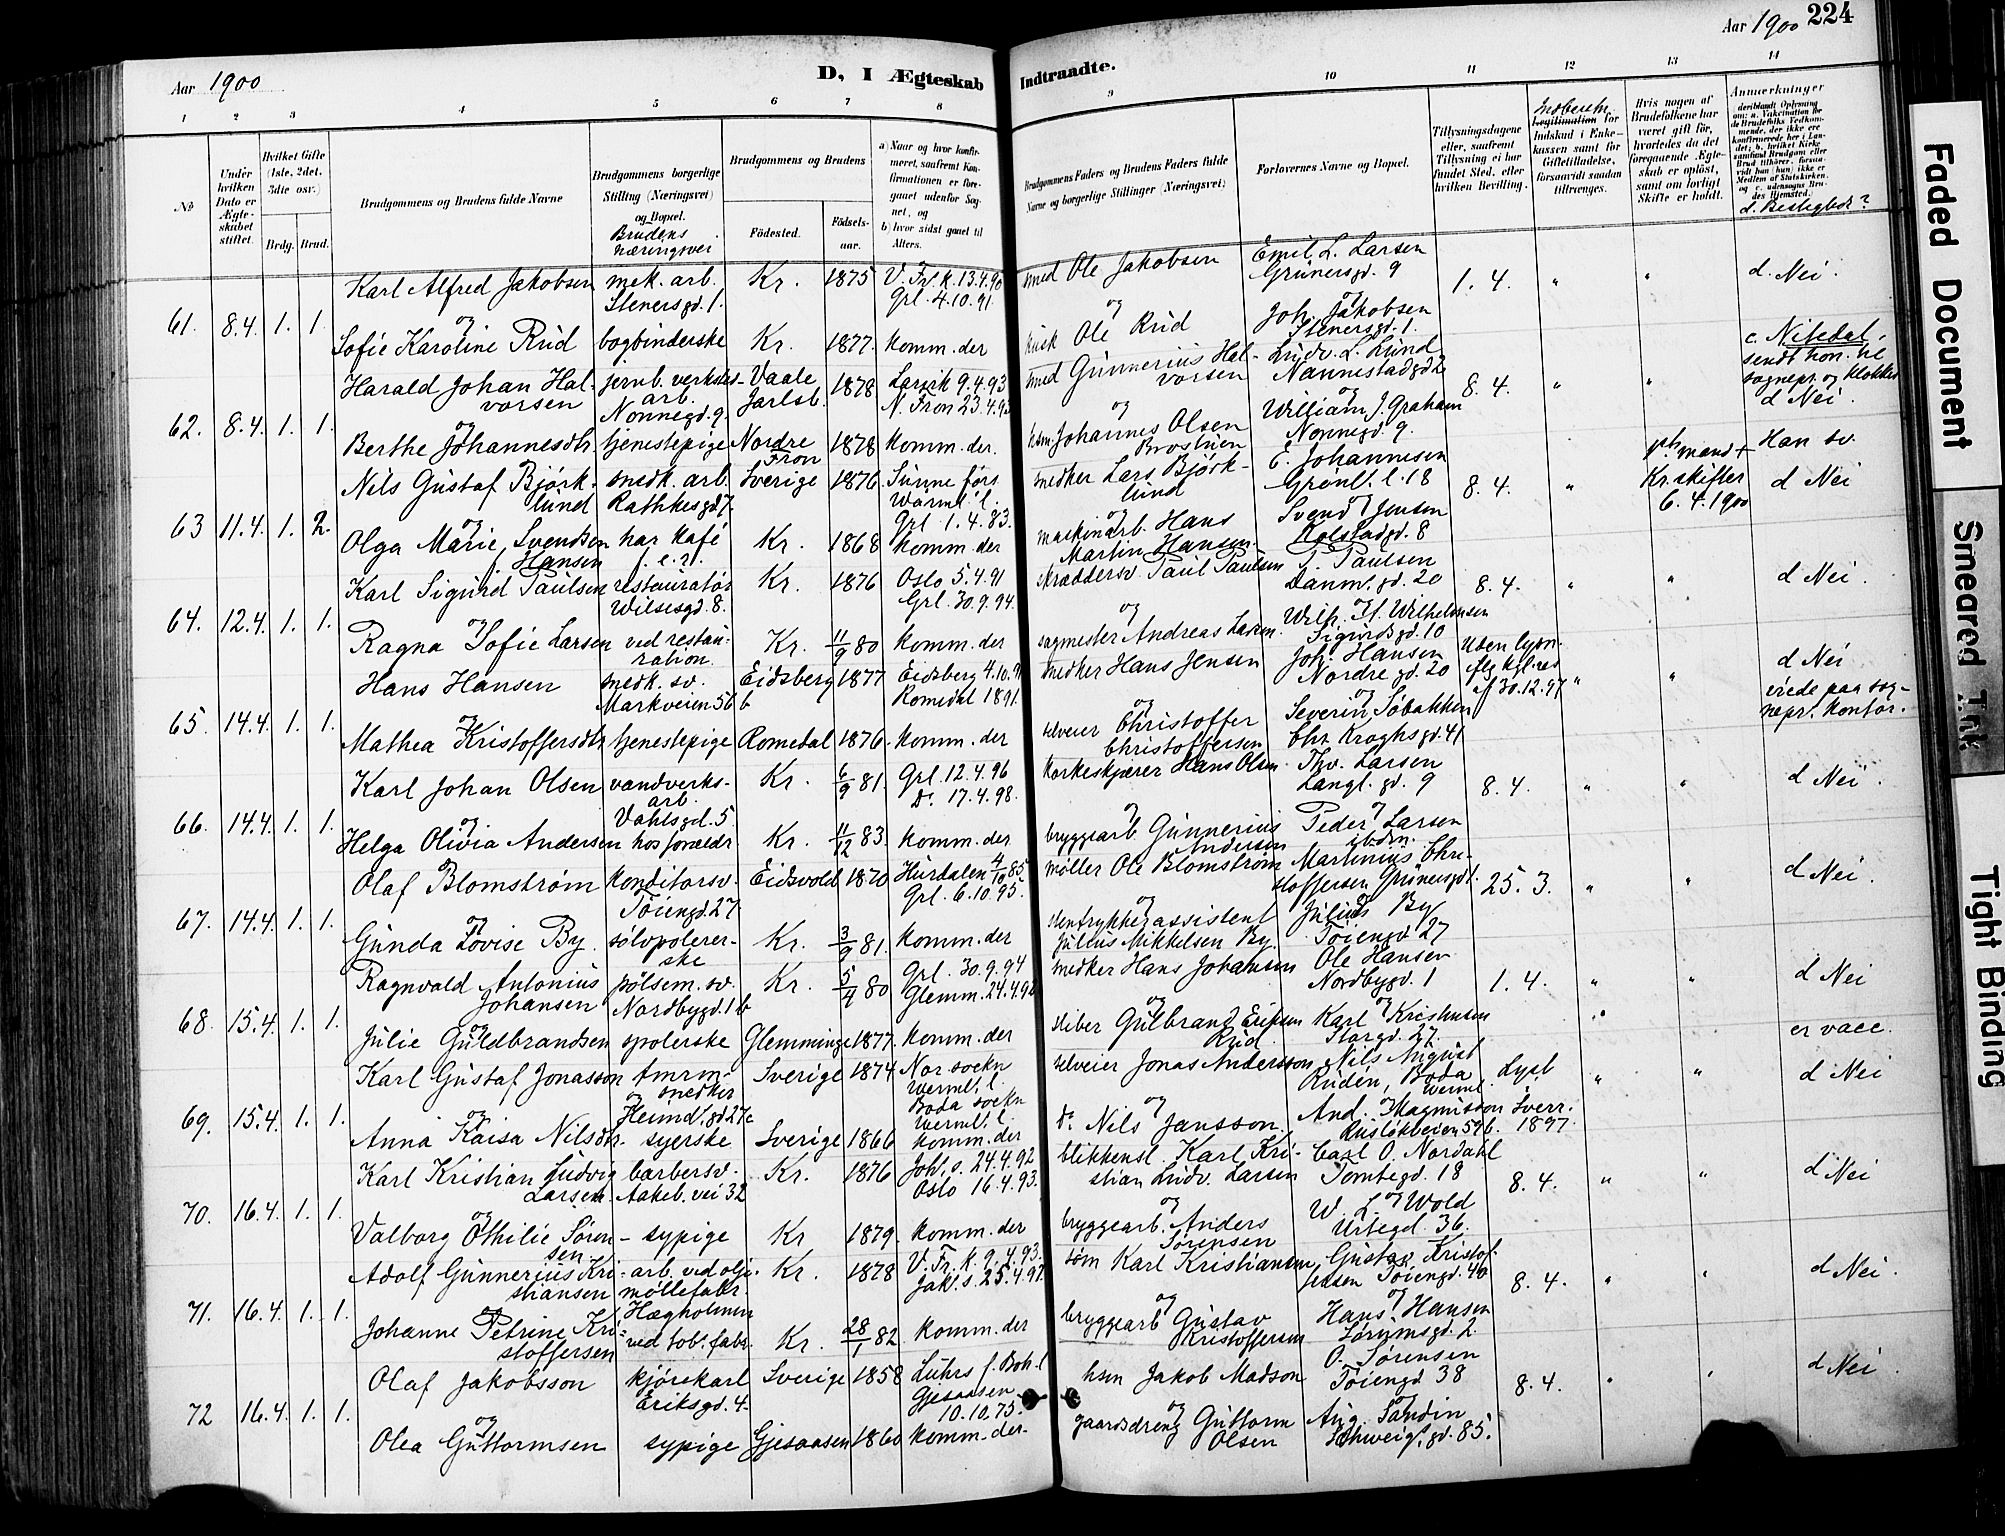 Aar 1900
D, I Ægteskab
Indtraadte.
Aar 1900 224
1 2 3 4 5 6 7 8 9 10 11 12 13 14
No
Under hvilken Dato er Ægteskabet stiftet.
Hvilket Gifte (1ste, 2det, 3die osv.)
Brdg. Brud.
Brudgommens og Brudens fulde Navne
Brudgommens borgerlige Stilling (Næringsvei) og Bopæl.
Brudens næringsvei
Brudgommens og Brudens
Fødested.
Fødselsaar.
a) Naar og hvor konfirmeret, saafremt Konfirmationen er foregaaet udenfor Sognet, og
b) hvor sidst gaaet til Alters.
Brudgommens Faders og Brudens Faders fulde Navne og borgerlige Stillinger (Næringsvei)
Forlovernes Navne og Bopæl.
Tillysningsdagene eller, saafremt Tillysning ei har fundet Sted, efter hvilken Bevilling.
Legitimation for Indskud i Enkekassen samt for Giftetilladelse, forsaavidt saadan tiltrænges.
Hvis nogen af Brudefolkene har været gift før, hvorledes da det foregaaende Ægteskab er opløst, samt om lovligt Skifte er holdt.
Anmærkninger
d. Beslegtede?
61. 8.4. 1. 1.
Karl Alfred Jakobsen mek. arb. Stenersgd. 1. Kr. 1875 V. Fr. k. 13.4.90 Grl. 4.10.91
smed Ole Jakobsen Emil L. Larsen Grünersgd. 9 1. 4. " " d. Nei.
og
Sofie Karoline Rud bogbinderske Kr. 1877. komm. der
kusk Ole Rud Joh. Jakobsen Stenersgd. 1.
62. 8.4. 1. 1.
Harald Johan Halvorsen jernb. verksted-arb. Nonnegd. 9 Vaale Jarlsb. 1878 Larvik 9.4.93 N. Fron 23.4.93
smed Gunnerius Halvorsen Ludv. L. Lund Nannestadgd 2 8. 4. " "
c. Nitedal,
d Nei.
og
Berthe Johannesdtr. tjenestepige Nordre Fron 1878 komm. der.
hsm. Johannes Olsen William J. Graham Nonnegd. 9.
63 11.4. 1. 2.
Nils Gustaf Bjørklund snedk. arb. Rathkesgd 7. Sverige 1876 Sunne førs. Wärml. l. Grl. 1.4.83.
snedker Lars Bjørklund E. Johannesen Grønl. l. 18 8. 4. "
Kr. skifter 6.4.1900
Han sv.
d Nei
og
Olga Marie Svendsen f. Hansen har kafé Kr. 1868 komm. der
maskinarb. Hans Martin Hansen Svend Jensen
64. 12.4. 1. 1.
Karl Sigurd Paulsen restauratør Wilsesgd. 8. Kr. 1876 Oslo 5.4.91 Grl. 30.9.94.
skræddersv. Paul Paulsen P. Paulsen Danm. gd. 20 8. 4. " " d Nei.
og
Ragna Sofie Larsen ved restauration. Kr. 11/9 80 komm. der
sagmester Andreas Larsen Wilh. H. Wilhelmsen Sigurdsgd. 10
65. 14.4. 1. 1.
Hans Hansen snedk. sv. Markveien 56 b Eidsberg 1877 Eidsberg 4.10.91 Romedal 1891.
snedker Hans Jensen Joh. Hansen Nordre gd. 20
uden lysn. iflg kgl. res af 30.12.97 " " d Nei
viede paa sognepr. kontor.
og
Mathea Kristoffersdtr tjenestepige Romedal 1876. komm. der
selveier Christoffer Christoffersen Severin Søbakken Chr. Kroghsgd. 41
66. 14.4. 1. 1.
Karl Johan Olsen vandverks-arb. Vahlsgd. 5 Kr. 6/9 81. Grl. 12.4.96 Do. 17.4.98.
korkeskjærer Hans Olsen Thv. Larsen Langl. gd. 9 8. 4. " " d Nei.
og
Helga Olivia Andersen hos foreldr Kr. 11/12 83. komm. der
bryggearb Gunnerius Andersen Peder Larsen ibdm.
67. 14.4. 1. 1.
Olaf Blomstrøm konditorsv. Tøiengd. 27 Eidsvold 1870 Hurdalen 4/10 85 Grl. 6.10.95.
møller Ole Blomstrøm Martinius Christoffersen Grünersgd 1. 25. 3. " " d Nei.
og
Gunda Lovise By. sølvpolererske Kr. 3/9 81. komm. der
stentrykkerassistent Julius Mikkelsen By. Julius By Tøiengd 27
68. 15.4. 1. 1.
Ragnvald Antonius Johansen pølsem. sv. Nordbygd. 1 b Kr. 5/4 80 Grl. 30.9.94 Glemm. 24.4.98
snedker Hans Johansen Ole Hansen Nordbygd. 1 1. 4. " " d Nei
og
Julie Guldbrandsen spolerske Glemminge 1877. komm. der
sliber Gulbrand Eriksen Rud Karl Kristensen Storgd. 27. er vacc.
69. 15.4. 1. 1.
Karl Gustaf Jonasson tømrm-snedker Heimd. gd 27c Sverige 1874 Nor sockn Wermll. l. Boda sockn Werml. l.
selveier Jonas Andersson Nils August Rudén, Boda Werml. Lyst Sverr. 1897. " " d Nei
og
Anna Kaisa Nilsdtr. syerske Sverige 1866 komm. der
do. Nils Jansson. And. Magnusson Ruseløkveien 59b.
70. 16.4. 1. 1.
Karl Kristian Ludvig Larsen barbersv. Aakeb. vei 32 Kr. 1876 Joh. s. 24.4.92 Oslo 16.4.93.
blikkensl. Karl Kristian Ludv. Larsen Carl O. Nordahl Tomtegd. 18 8. 4. " " d Nei
og
Valborg Othilie Sørensen sypige Kr 1879. komm. der
bryggearb. Anders Sørensen W. L. Wold Urtegd. 36.
71. 16.4. 1. 1.
Adolf Gunnerius Kristiansen arb. ved oljemøllefabr. Hægholmen Kr. 1878 V. Fr. k. 9.4.93. Jak. s. 25.4.97.
søm Karl Kristiansen Gustav Kristoffersen Tøiengd. 40 8. 4. " " d Nei.
og
Johanne Petrine Kristoffersen ved tob. fabr. Kr. 28/1 82 komm. der
bryggearb Gustav Kristoffersen Hans Hansen Sørumsgd. 2.
72 16.4. 1. 1.
Olaf Jakobsson kjørekarl Eriksgd. 4. Sverige 1858 Luhrs f. Boh. l Gjesaasen 10.10.75.
hsm Jakob Madson O. Sørensen Tøiengd 38 8. 4. " " d Nei
og
Olea Guttormsen sypige Gjesaasen 1860 komm. der
gaardsdreng Guttorm Olsen Aug. Sandin Schweig. gd. 85.
Faded Document
Smeared Ink
Tight Binding